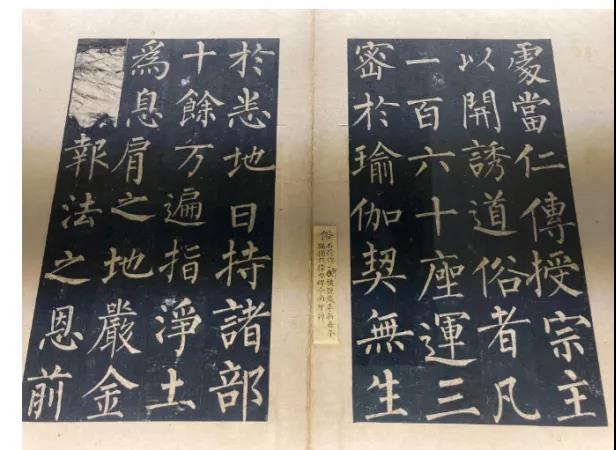 處當仁傳授宗主
以開誘道俗者凡
一百六十座運三
密於瑜伽契無生
俗
於悉地日持諸部
十餘万遍指淨土
為息肩之地嚴金
報法之恩前